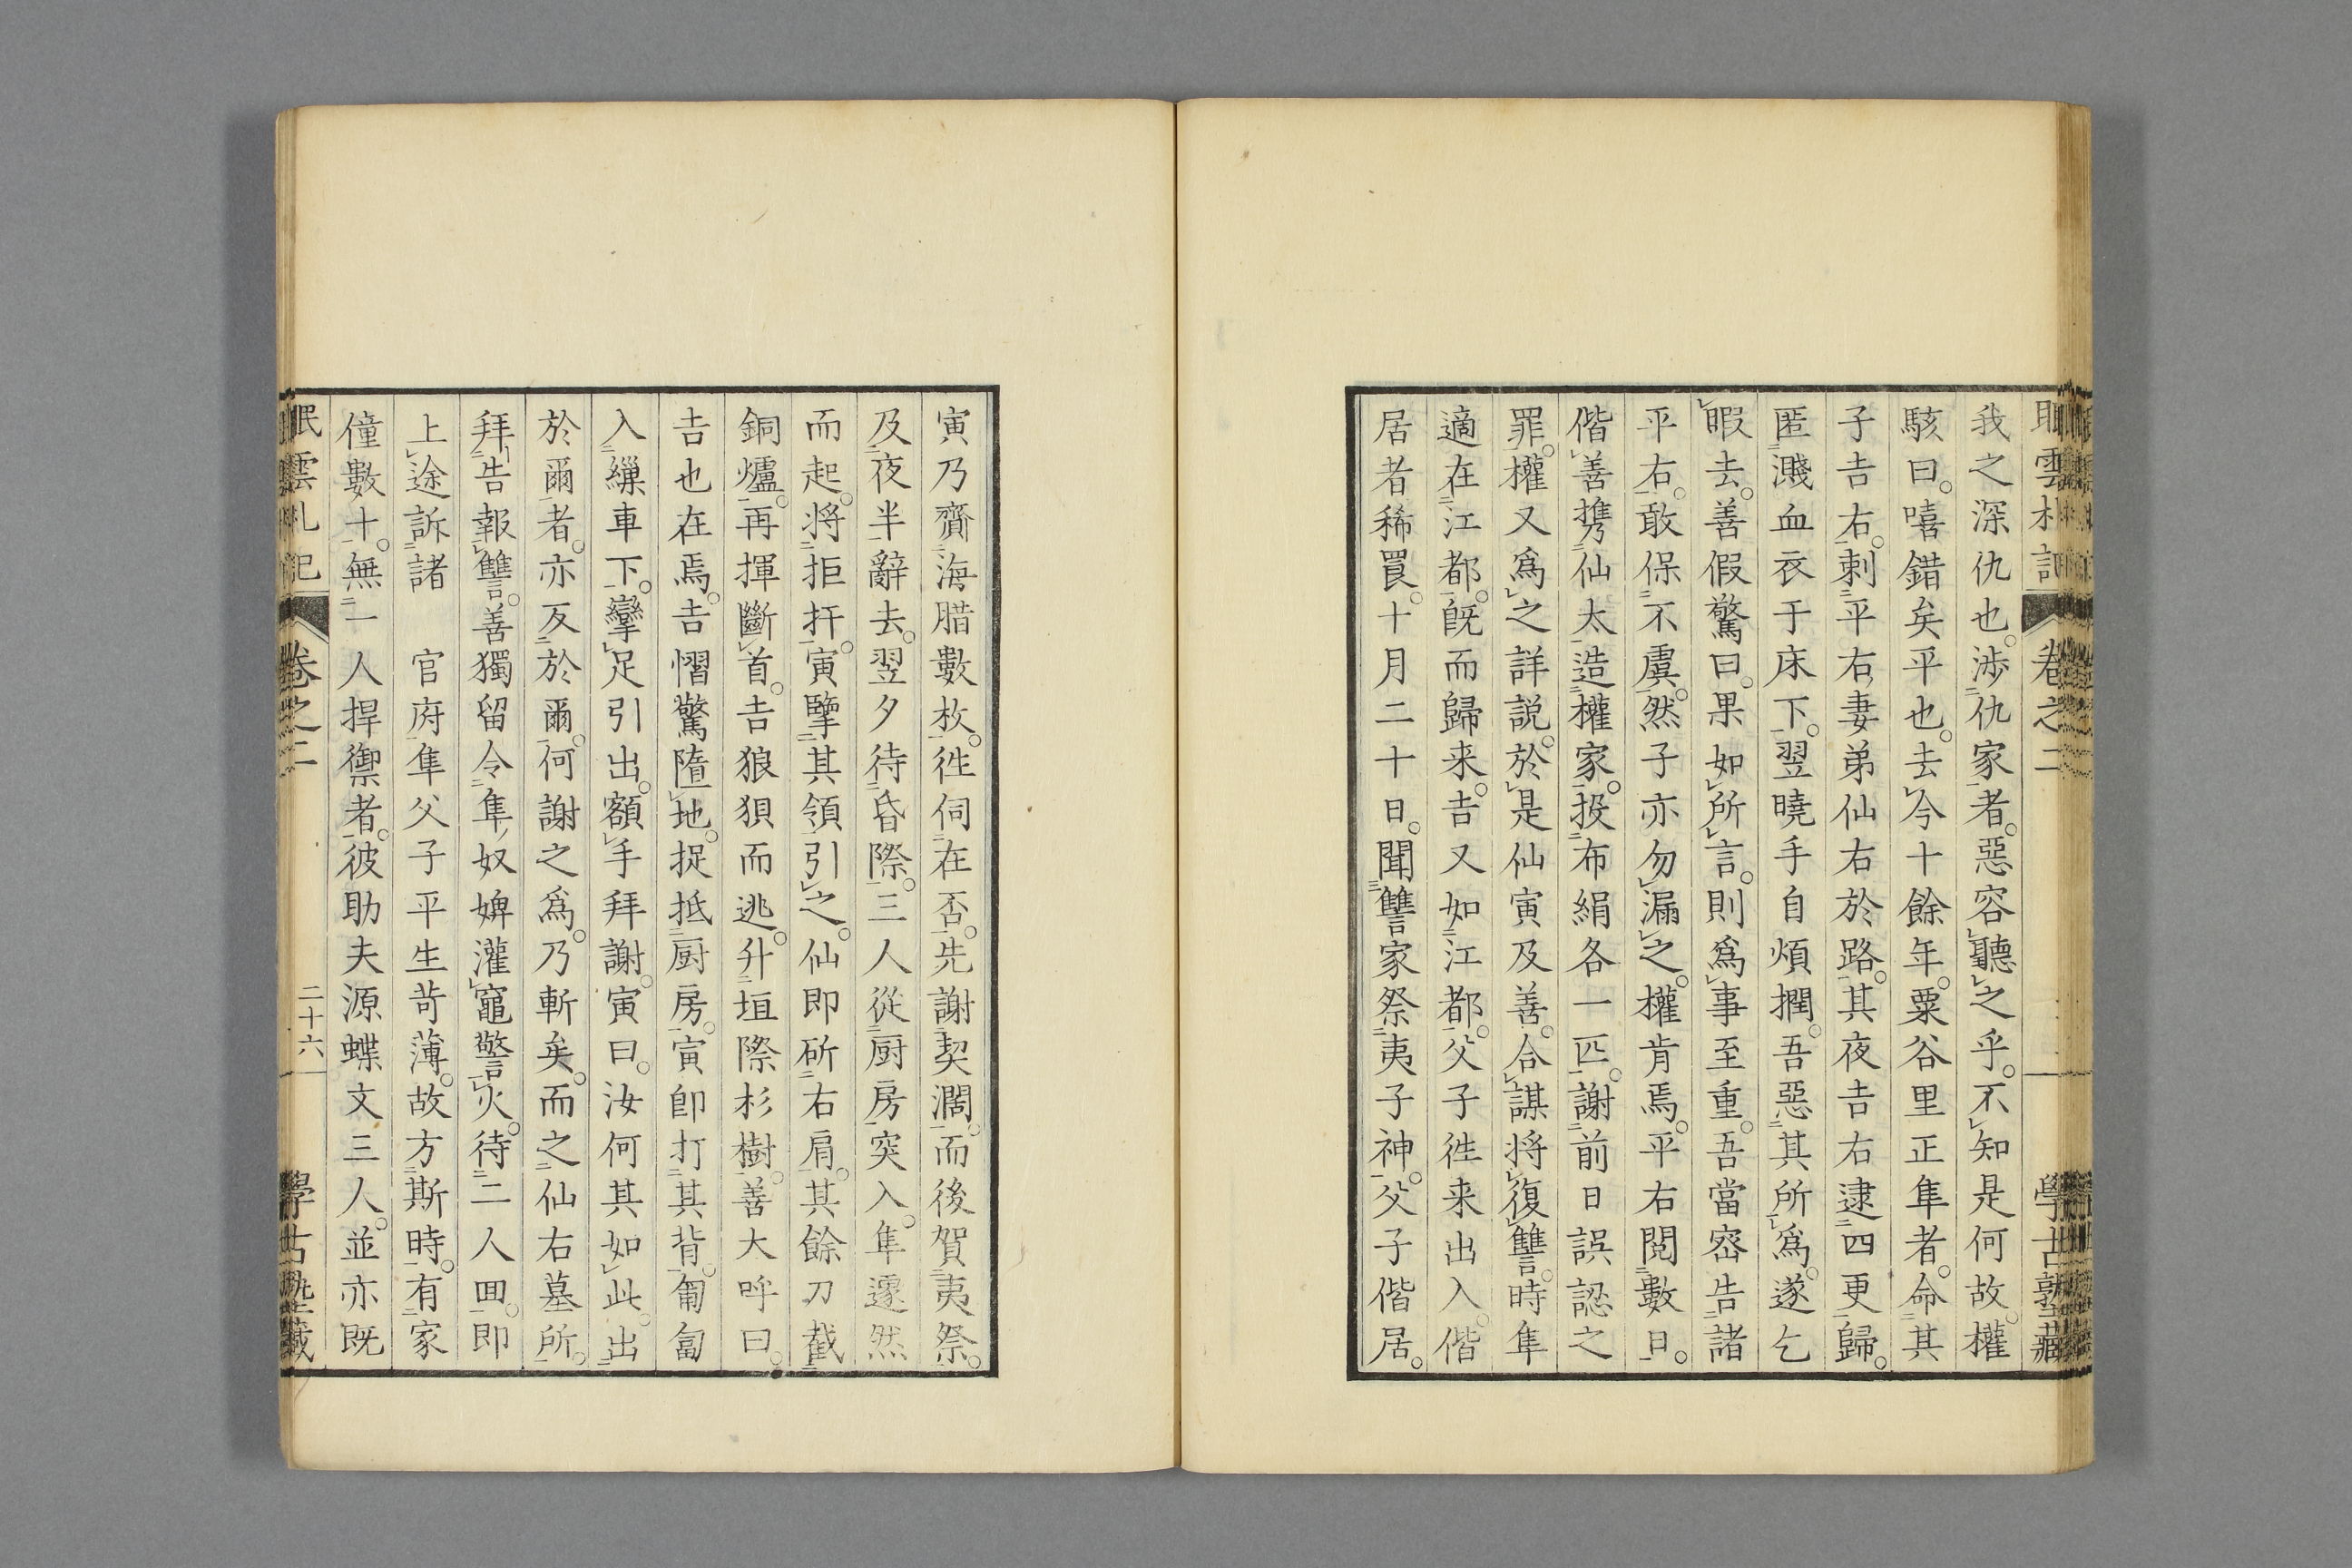 眠雲札記 卷之二 學古塾藏
我之深仇也。涉仇家者。惡容聽之乎。不知是何故。權
駭曰。嘻錯矣平也。去今十餘年。粟谷里正隼者。命其
子吉右。刺平右妻弟仙右於路。其夜吉右逮四更歸。
匿濺血衣于床下。翌曉手自煩撋。吾惡其所爲。遂乞
暇去。善假驚曰。果如所言。則爲事至重。吾當密告諸
平右。敢保不虞。然子亦勿漏之。權肯焉。平右閲數日。
偕善攜仙太造權家。投布絹各一匹。謝前日誤認之
罪。權又爲之詳説。於是仙寅及善。合謀将復讐。時隼
適在江都。既而歸来。吉又如江都。父子徃来出入。偕
居者稀罠。十月二十日。聞讐家祭夷子神。父子偕居。
寅乃齎海腊數枚。徃伺在否。先謝契濶。而後賀夷祭。
及夜半辭去。翌夕待昏際。三人從厨房突入。隼遽然
而起。将拒扞。寅擥其領引之。仙即斫右肩。其餘刀截
銅爐。再揮斷首。吉狼狽而逃。升垣際杉樹。善大呼曰。
吉也在焉。吉慴驚墮地。捉抵厨房。寅即打其背。匍匐
入繅車下。攣足引出。額手拜謝。寅曰。汝何其如此。出
於爾者。亦反於爾。何謝之爲。乃斬矣。而之仙右墓所。
拜告報讐。善獨留令隼奴婢灌竈警火。待二人回。即
上途訴諸 官府。隼父子平生苛薄。故方斯時。有家
僮數十。無一人捍禦者。彼助夫源蝶文三人。並亦既
眠雲札記 卷之二 二十六 學古塾藏